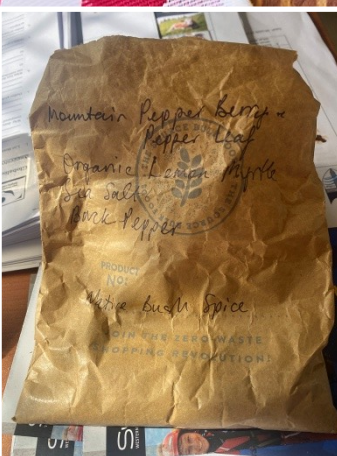 Mountain Pepper Berry +
Pepper Leaf
Organic Lemon Myrtle
Sea Salt
Bark Pepper
THE SOURCE BULK
THE SOURCE
PRODUCT
NO:
Native Bush Spice
JOIN THE ZERO WASTE
SHOPPING REVOLUTION!